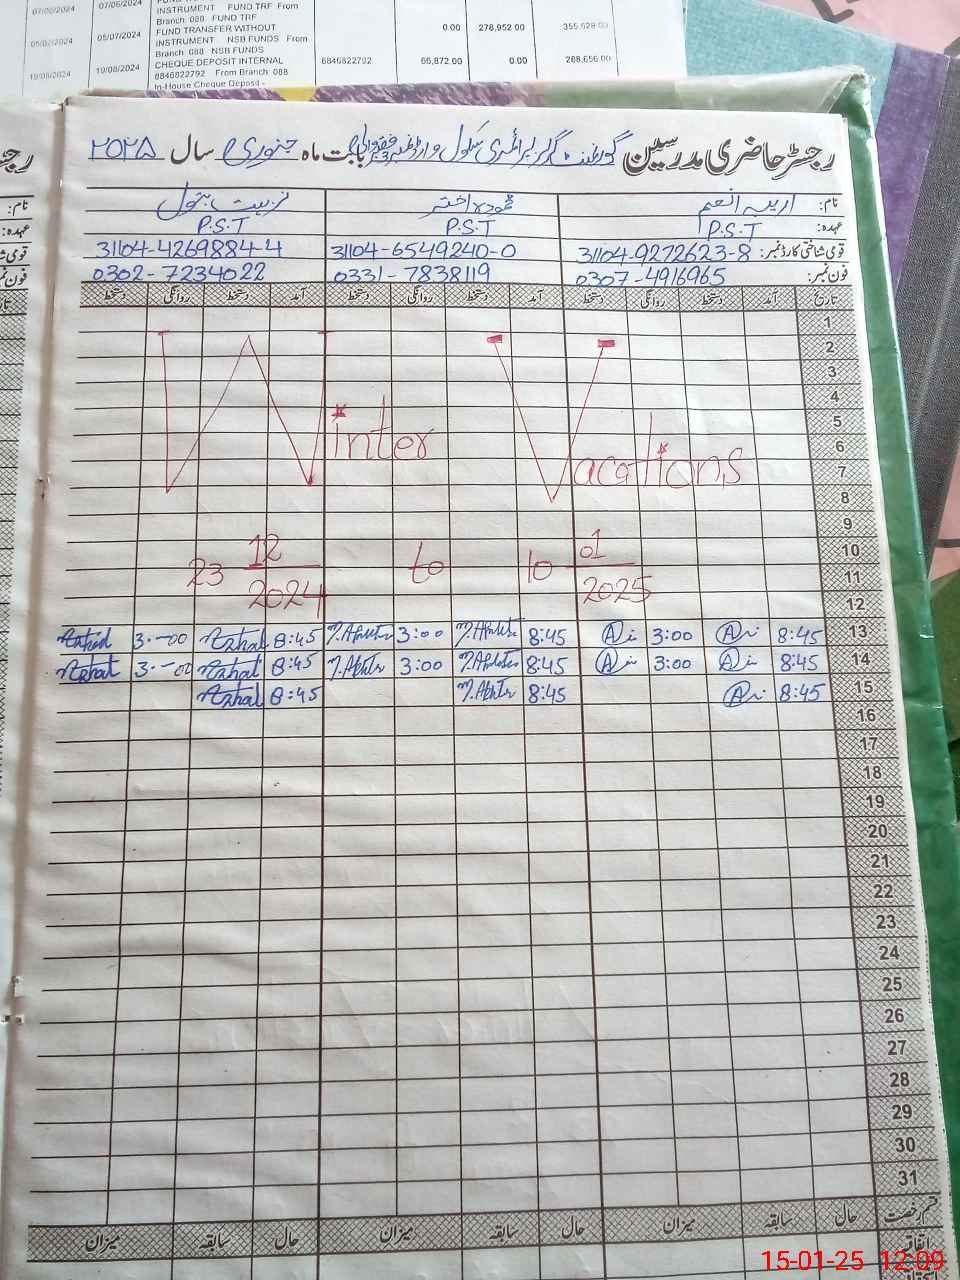 07/06/2024 07/06/2024 INSTRUMENT FUND TRF From
Branch 088 FUND TRF
05/07/2024 05/07/2024 FUND TRANSFER WITHOUT 0.00 278,952.00 355,628.00
INSTRUMENT NSB FUNDS From
Branch 088 NSB FUNDS
19/08/2024 19/08/2024 CHEQUE DEPOSIT INTERNAL 6846822792 66,872.00 0.00 288,656.00
6846822792 From Branch 088
In-House Cheque Deposit -
رجسٹر حاضری مدرسین گورنمنٹ گرلز پرائمری سکول وارڈ نمبر 3 فقیروالی بابت ماہ جنوری سال ۲۰۲۵
نام: اریبہ انعم محمودہ اختر تربیت بتول
عہدہ: P.S.T P.S.T P.S.T
قومی شناختی کارڈ نمبر: 31104-9272623-8 31104-6549240-0 31104-4269884-4
فون نمبر: 0307-4916965 0331-7838119 0302-7234022
تاریخ آمد دستخط روانگی دستخط آمد دستخط روانگی دستخط آمد دستخط روانگی دستخط
1
2
3
4
5
6
7
8
Winter Vacations
9
10
11
12
23 12/2024 to 10 01/2025
13 8:45 3:00 8:45 M.Akhter 3:00 M.Akhter 8:45 3:00
14 8:45 3:00 8:45 M.Akhter 3:00 M.Akhter 8:45 3:00
15 8:45 8:45 M.Akhter 8:45
16
17
18
19
20
21
22
23
24
25
26
27
28
29
30
31
قسم رخصت حال سابقہ میزان حال سابقہ میزان حال سابقہ میزان
اتفاقیہ
15-01-25 12:09